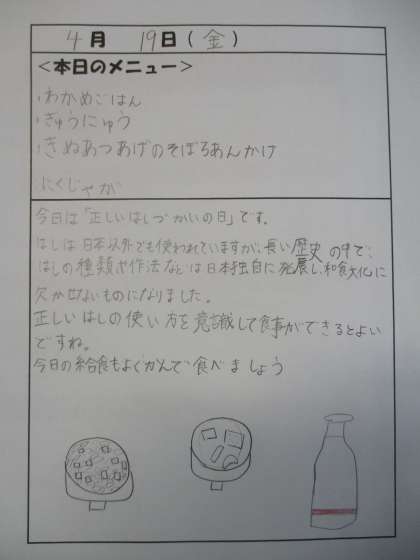 4月 19日(金)
<本日のメニュー>
・わかめごはん
・ぎゅうにゅう
・きぬあつあげのそぼろあんかけ
にくじゃが
今日は「正しいはしづかいの日」です。
はしは日本以外でも使われていますが、長い歴史の中で、
はしの種類や作法などは日本独自に発展し、和食文化に
欠かせないものになりました。
正しいはしの使い方を意識して食事ができるとよい
ですね。
今日の給食もよくかんで食べましょう